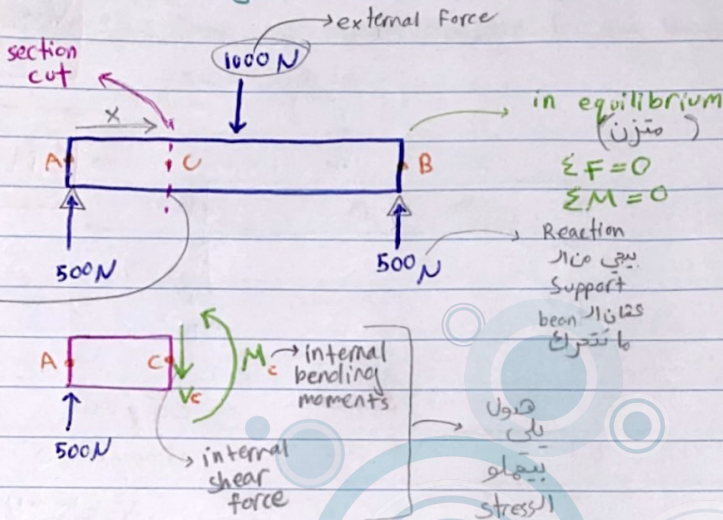 external force
1000 N
section
cut
x
A
C
B
500N
500N
in equilibrium
(متزن)
ΣF=0
ΣM=0
Reaction
بيجي من ال
Support
عشان ال bean
ما تتحرك
A
C
Vc
Mc → internal
bending
moments
500N
internal
shear
force
هدول
يلي
بيعملو
الـ stress